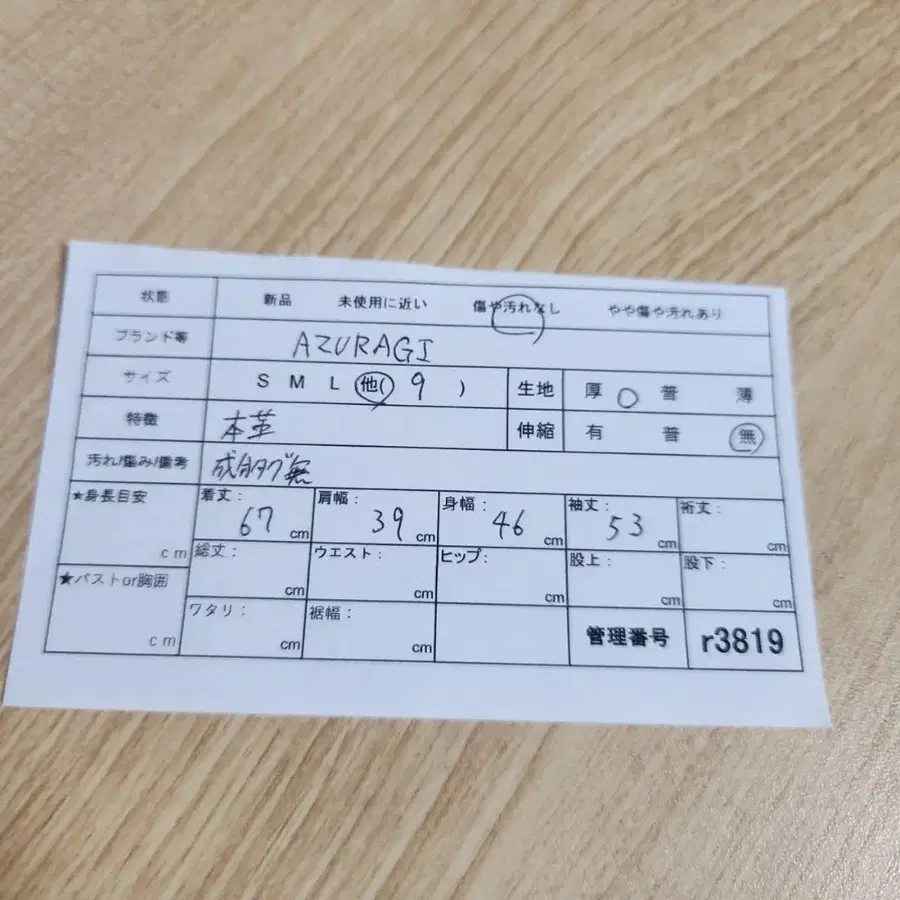 状態 新品 未使用に近い 傷や汚れなし やや傷や汚れあり
ブランド等 AZURAGI
サイズ S M L 他( 9 ) 生地 厚 普 薄
特徴 本革 伸縮 有 普 無
汚れ/傷み/備考 成分タグ無
★身長目安 cm 着丈: 67 cm 肩幅: 39 cm 身幅: 46 cm 袖丈: 53 cm 裄丈: cm
総丈: cm ウエスト: cm ヒップ: cm 股上: cm 股下: cm
★バストor胸囲 cm ワタリ: cm 裾幅: cm 管理番号 r3819